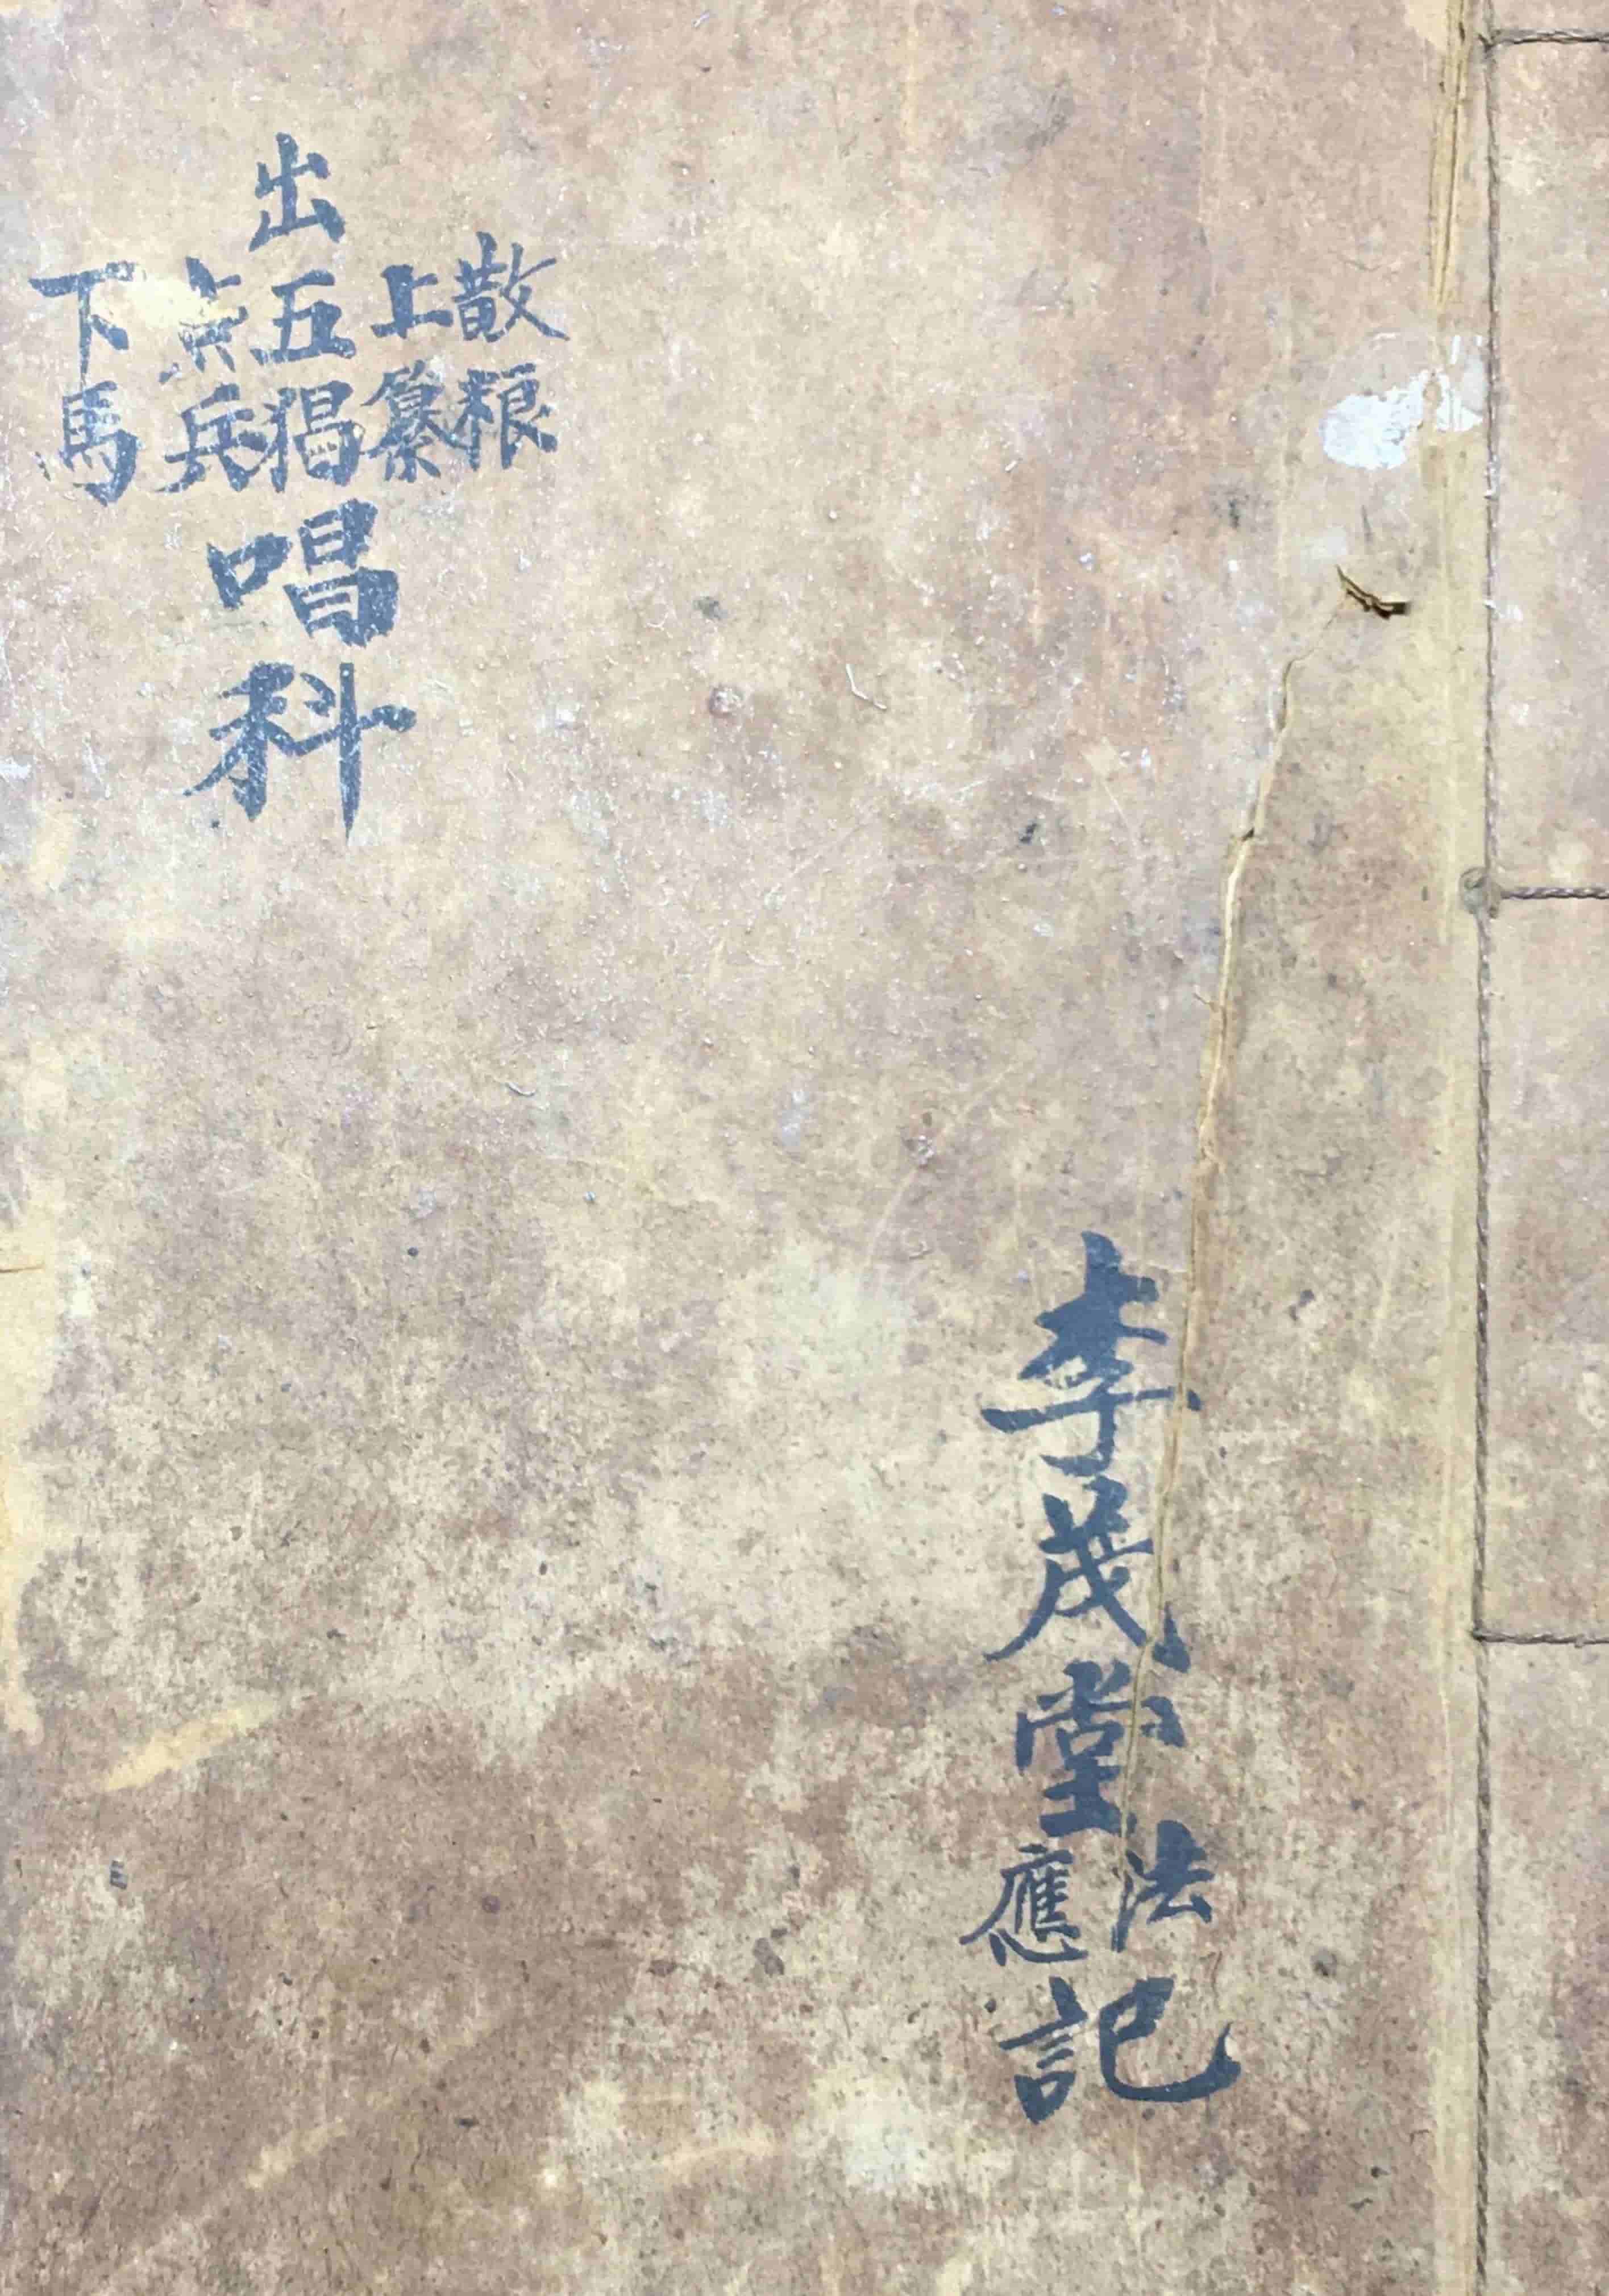 李茂堂法應記
散粮
上纂
出五猖唱科
点兵
下馬